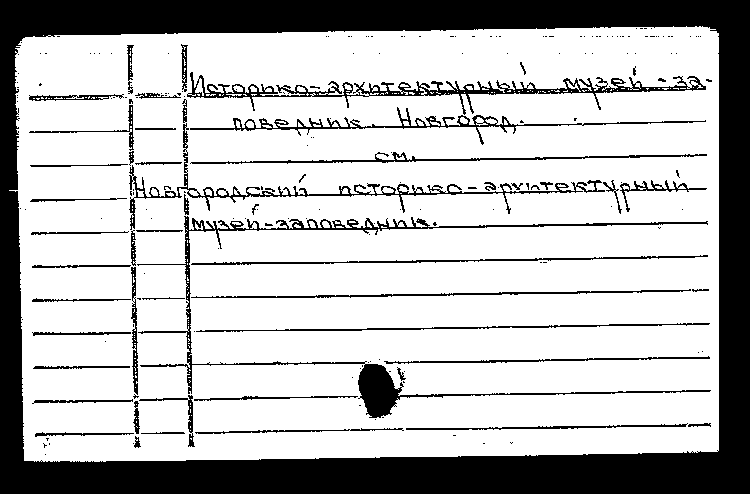 Историко-архитектурный музей-за-
поведник. Новгород.
см.
Новгородский историко-архитектурный
музей-заповедник.